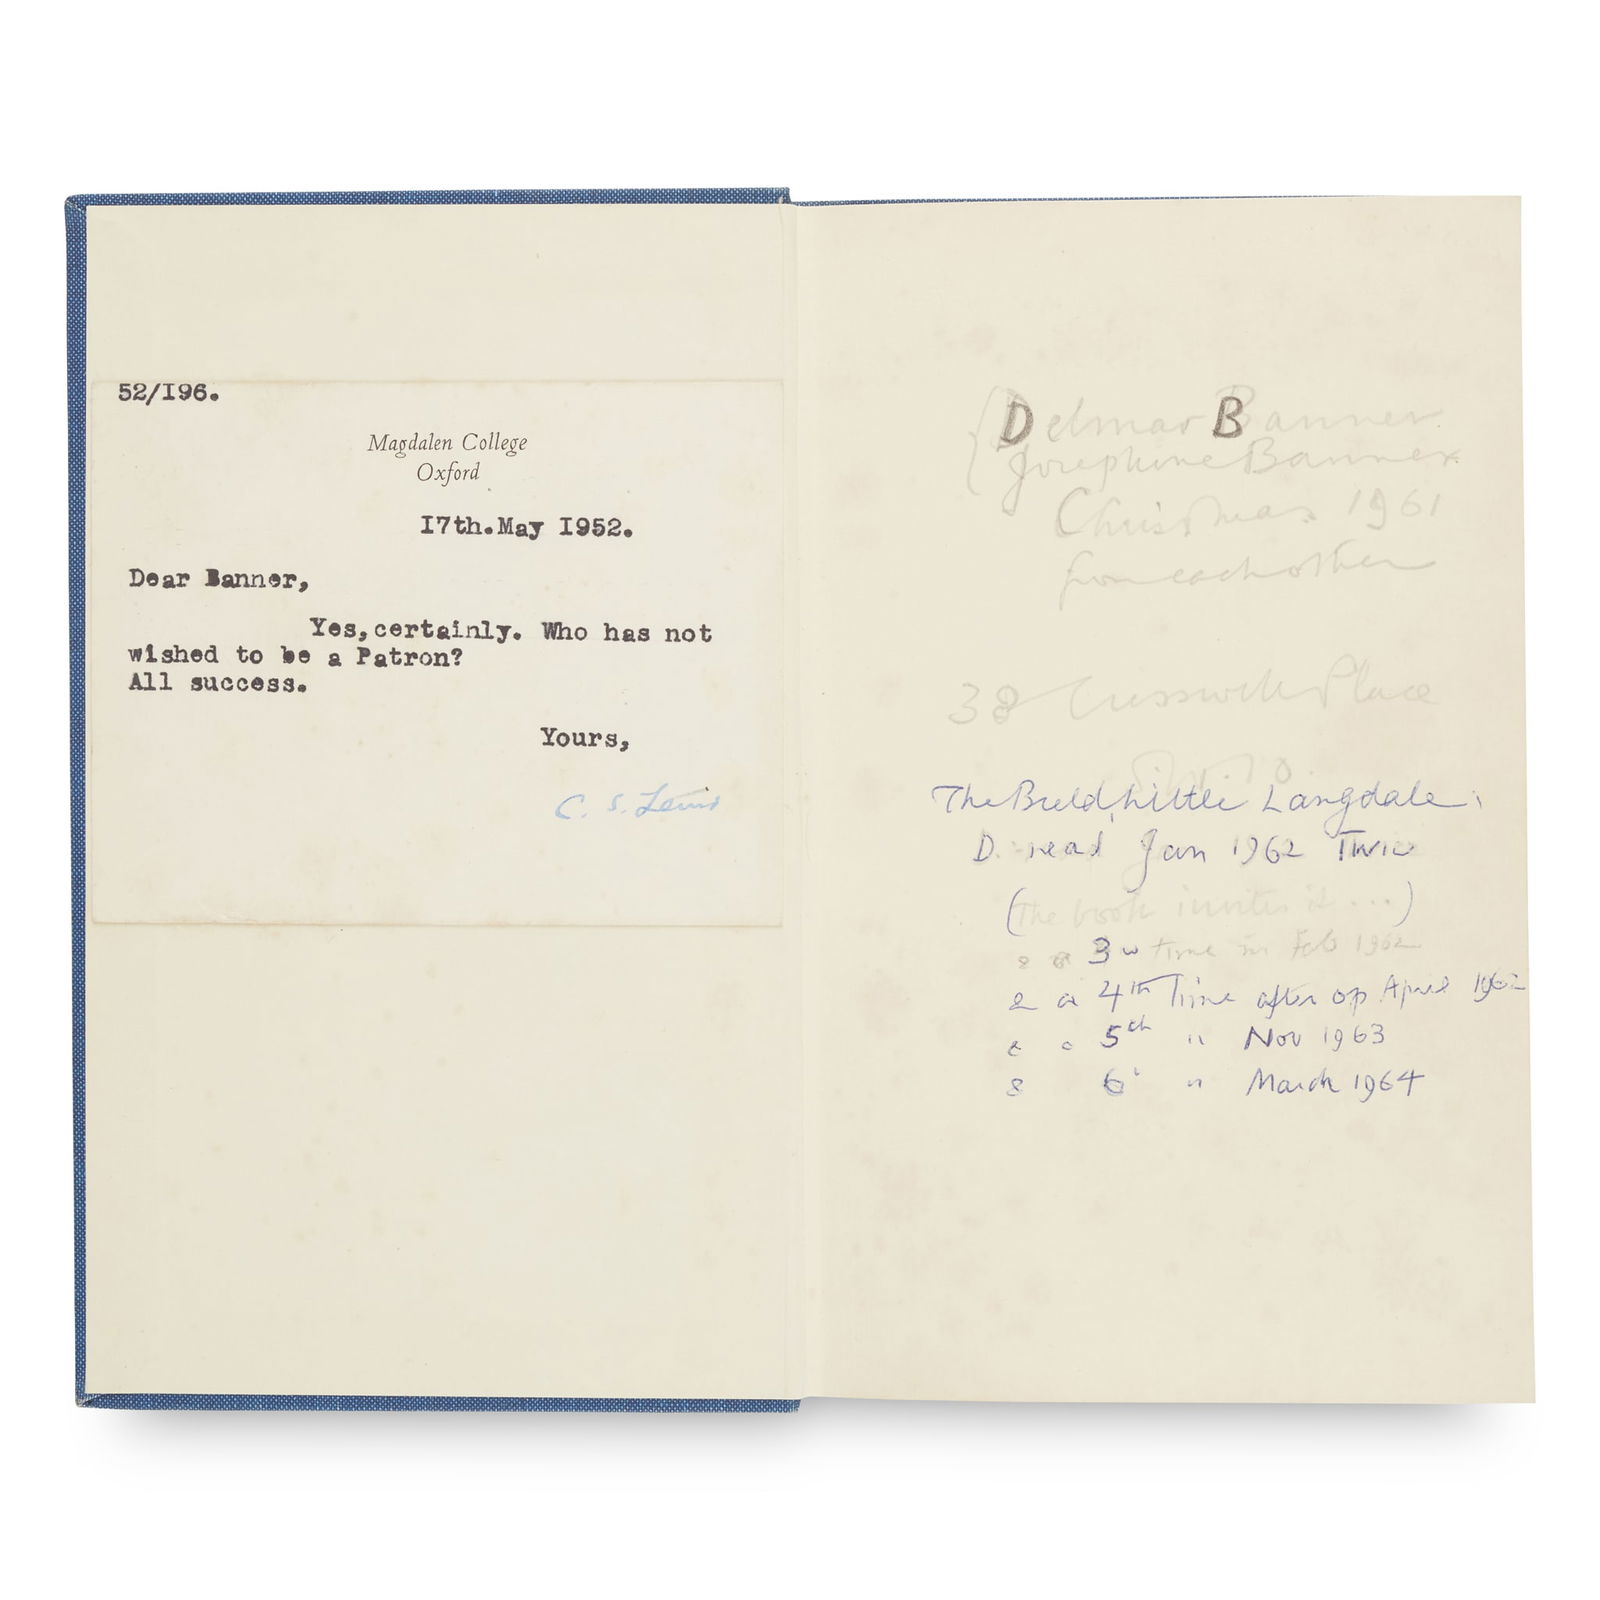 52/I96.
Magdalen College
Oxford
I7th.May I952.
Dear Banner,
Yes,certainly. Who has not
wished to be a Patron?
All success.
Yours,
C. S. Lewis
Delmar Banner
Josephine Banner
Christmas 1961
from each other
38 Cresswell Place
The Bield, Little Langdale.
D. read Jan 1962 Twice
(The book invites it ...)
& a 3rd time in Feb 1962
& a 4th Time after op April 1962
& a 5th " Nov 1963
& 6 " March 1964